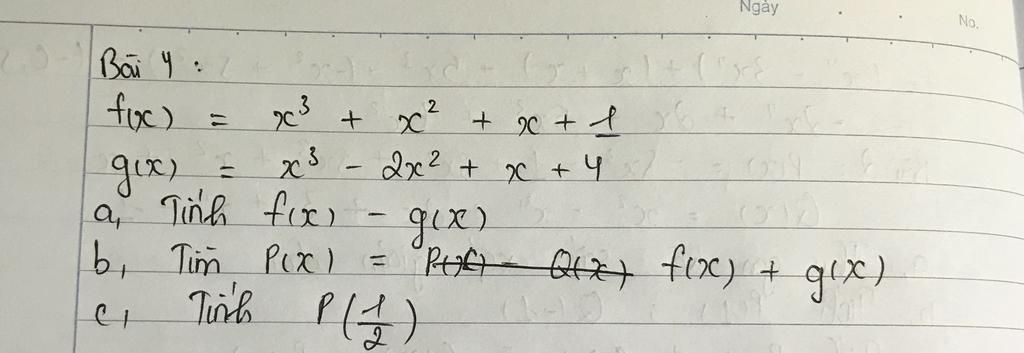 Ngày
No.
Bài 4 :
f(x) = x³ + x² + x + 1
g(x) = x³ - 2x² + x + 4
a, Tính f(x) - g(x)
b, Tìm P(x) = P(x) - Q(x) f(x) + g(x)
c, Tính P(1/2)